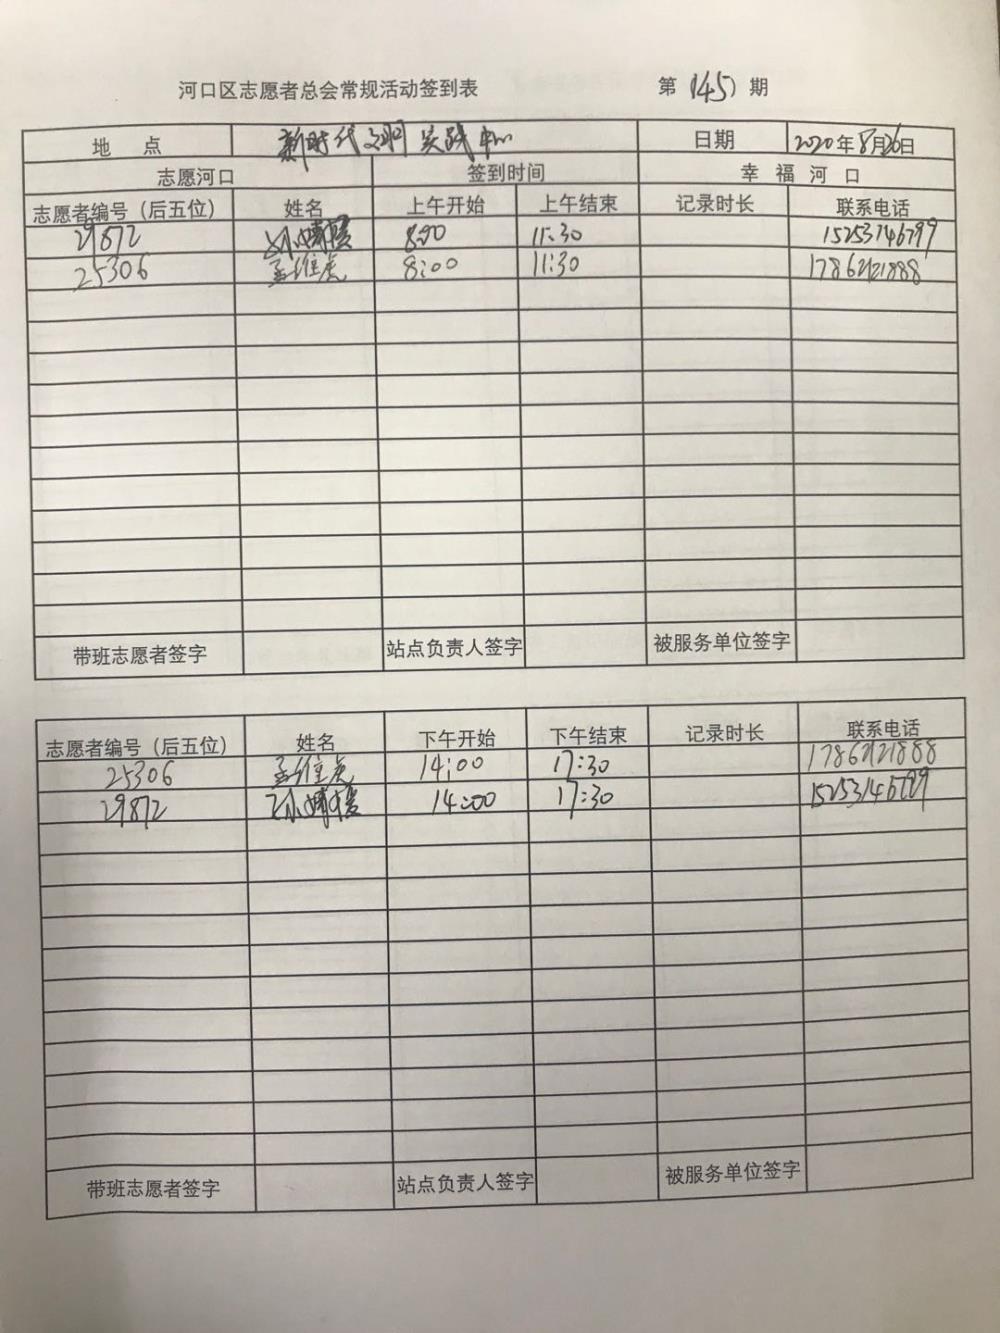 河口区志愿者总会常规活动签到表 第(145)期
地 点 新时代文明实践中心 日期 2020年8月26日
志愿河口 签到时间 幸 福 河 口
志愿者编号（后五位） 姓名 上午开始 上午结束 记录时长 联系电话
29872 8:00 11:30 15253146799
25306 孟维虎 8:00 11:30 17862121888
带班志愿者签字 站点负责人签字 被服务单位签字
志愿者编号（后五位） 姓名 下午开始 下午结束 记录时长 联系电话
25306 孟维虎 14:00 17:30 17862121888
29872 14:00 17:30 15253146799
带班志愿者签字 站点负责人签字 被服务单位签字